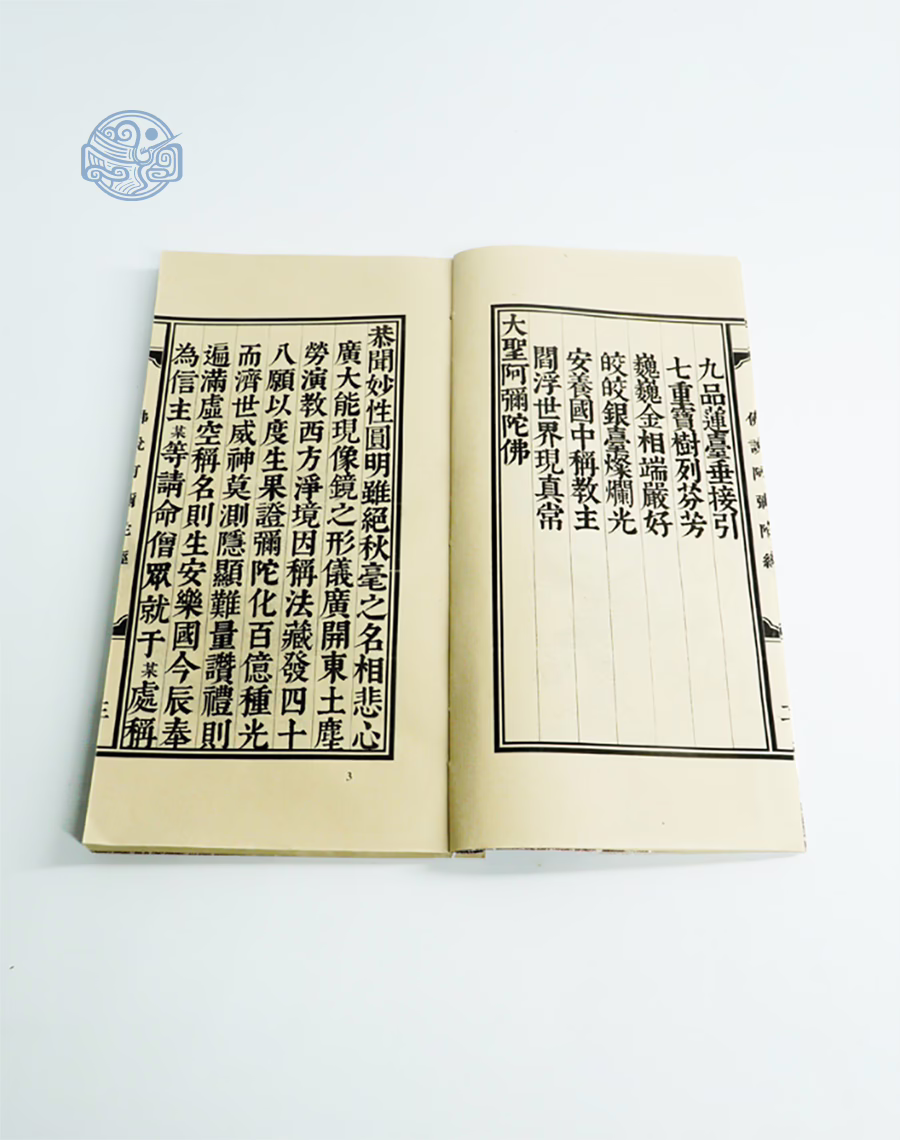 九品蓮臺垂接引
七重寶樹列芬芳
巍巍金相端嚴好
皎皎銀臺燦爛光
安養國中稱教主
閻浮世界現真常
大聖阿彌陀佛
恭聞妙性圓明雖絕秋毫之名相悲心
廣大能現像鏡之形儀廣開東土塵
勞演教西方淨境因稱法藏發四十
八願以度生果證彌陀化百億種光
而濟世威神莫測隱顯難量讚禮則
遍滿虛空稱名則生安樂國今辰奉
為信主某等請命僧眾就于某處稱
三
3